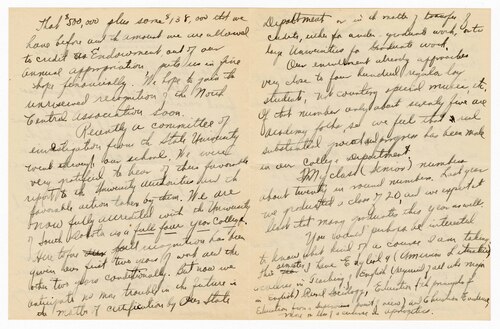 That $500,000 plus some $138,000 that we
have before out the amount we are allowed
to credit as Endowment out of our
annual appropriation puts us in fine
shape financially. We hope to gain the
unreserved recognition of the North
Central Association soon.
Recently a committee of
investigation from the State University
went through our school. We were
very grateful to hear of their favorable
report to the University Authorities and the
favorable action taken by them. We are
now fully accredited with the University
of South Dakota as a full four year College.
Heretofore recognition has been
given here first two years of work and the
other two years conditionally. But now we
anticipate no more trouble in the future in
the matter of certification by Our State
Department or in the matter of transfer of
credits, either for under-graduate work, into
by Universities for Graduate work.
Our enrollment already approaches
very close to four hundred regular day
students, not counting special music, etc.
Of this number only about seventy five are
academy folks, so we feel that real
substantial growth and progress has been made
in our College department.
My class (Seniors) number
about twenty in round numbers. Last year
we graduated a class of 20, and we expect
about that many graduates this year as well.
You would perhaps be interested
to know what kind of a course I am taking
this I have English 6 (American Literature)
in Teaching English (Required of all who major
in English) Rural Sociology, Education
Education and Christian Evidences,